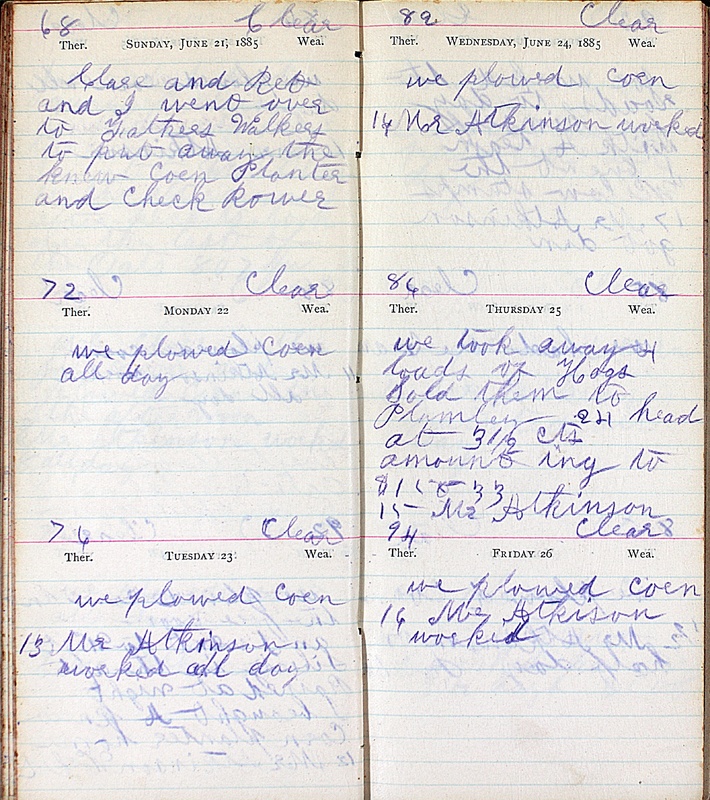 68 Clear
Ther. SUNDAY, JUNE 21, 1885 Wea.
Clare and Reb
and I went over
to Fathers Walkers
to put away the
knew Coen Planter
and Check Rower
72 Clear
Ther. MONDAY 22 Wea.
we plowed Coen
all day
76 Clear
Ther. TUESDAY 23 Wea.
we plowed Coen
13 Mr Atkinson
worked all day
82 Clear
Ther. WEDNESDAY, JUNE 24, 1885 Wea.
we plowed Coen
14 Mr Atkinson worked
86 Clear
Ther. THURSDAY 25 Wea.
we took away 4
loads of Hogs
Sold them to
Plumbey 24 head
at 3 1/2 cts
amount ing to
33
15 Mr Atkinson
94 Clear
Ther. FRIDAY 26 Wea.
we plowed Coen
16 Mr Atkison
worked